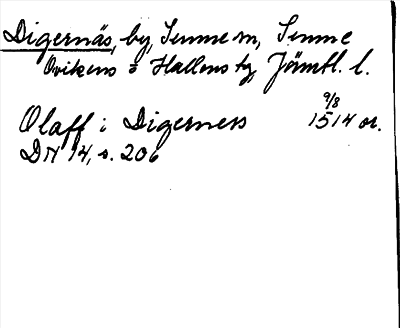 Digernäs, by, Sunne sn, Sunne
Ovikens o Hallens tg, Jämtl. l.
9/8
Olaff i Digernes 1514 or.
DN 14, s. 206